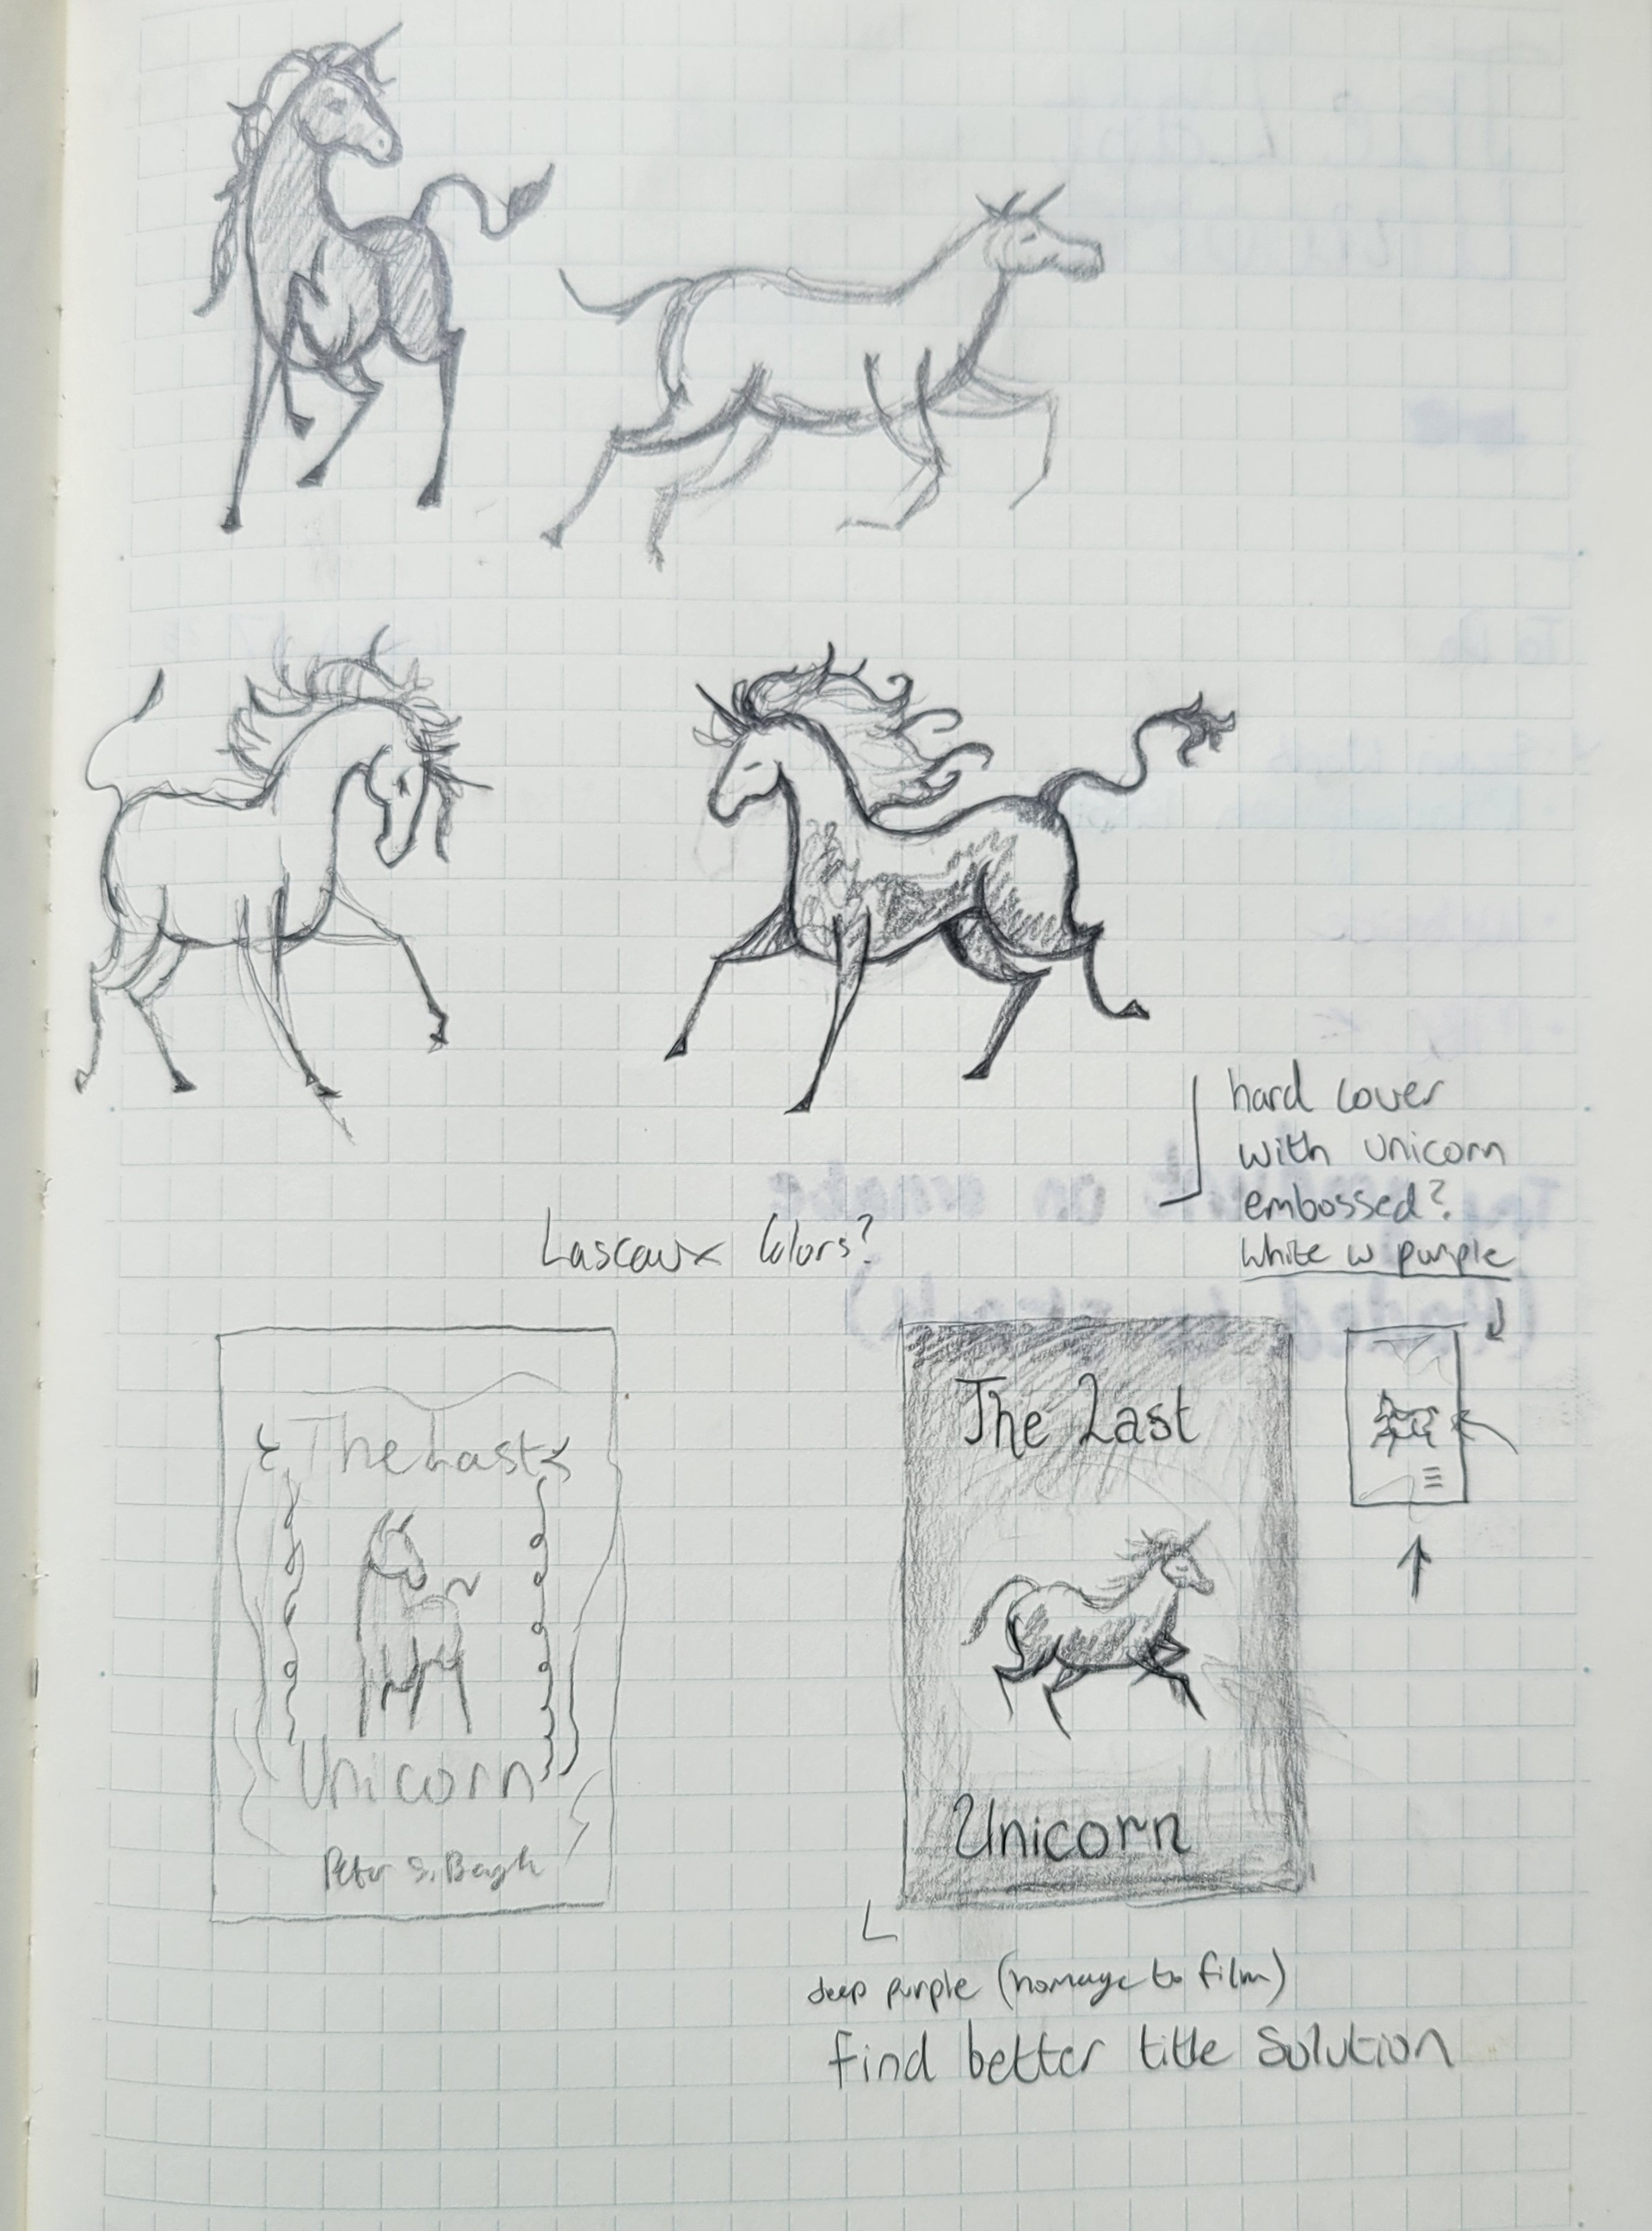 hard cover
with unicorn
embossed?
white w purple
Lascaux Colors?
The Last
Unicorn
Peter S. Beagle
The Last
Unicorn
deep purple (homage to film)
find better title solution